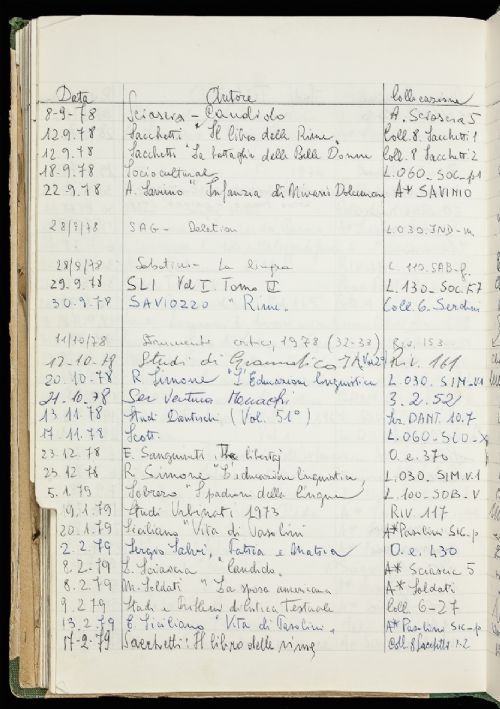 Data Autore Collocazione
8-9-78 Sciascia - Candido A. Sciascia 5
12.9.78 Sacchetti "Il libro delle Rime Coll. 8 Sacchetti 1
12.9.78 Sacchetti "La battaglia delle Belle Donne Coll. 8 Sacchetti 2
18.9.78 Sociocultural L.060-SOC-p1
22.9.78 A. Savinio "Infanzia di Nivasio Dolcemare A* SAVINIO
28/9/78 SAG- L.030.IND-
28/9/78 Sabatini - La lingua L. 119.SAB-
29.9.78 SLI Vol I. Tomo II L.130-SOC.
30.9.78 SAVIOZZO "Rime. Coll. 6. Serdini
11/10/78 Strumenti critici, 1978 (32-33) Riv. 153
17-10-78 Studi di Grammatica It. Riv. 161
20.10.78 R Simone "L'Educazione linguistica L.030.SIM.V1
21.10.78 Ser Ventura Monachi 3.2.52
13.11.78 Studi Danteschi (Vol. 51°) DANT. 10.7
17.11.78 Scott. L.060-SCO-
23.12.78 E. Sanguineti libertà O.e.370
23.12.78 R Simone "L'educazione linguistica, L.030.SIM.V.1
5.1.79 Sobrero "I padroni della lingua L.100-SOB.V
19.1.79 Studi Urbinati 1973 RIV. 117
20.1.79 Siciliano "Vita di Pasolini A*Pasolini SIC.p
2.2.79 Sergio Salvi, Patria e Matria O.e.430
8.2-79 L. Sciascia "Candido. A* Sciascia 5
8.2.79 M. Soldati "La sposa americana A* Soldati
9.2.79 Studi e Problemi di Critica Testuale Coll. 6-27
13.2.79 E. Siciliano "Vita di Pasolini. A*Pasolini SIC-p
17-2-79 Sacchetti: Il libro delle rime, Coll. 8 Sacchetti 1-2